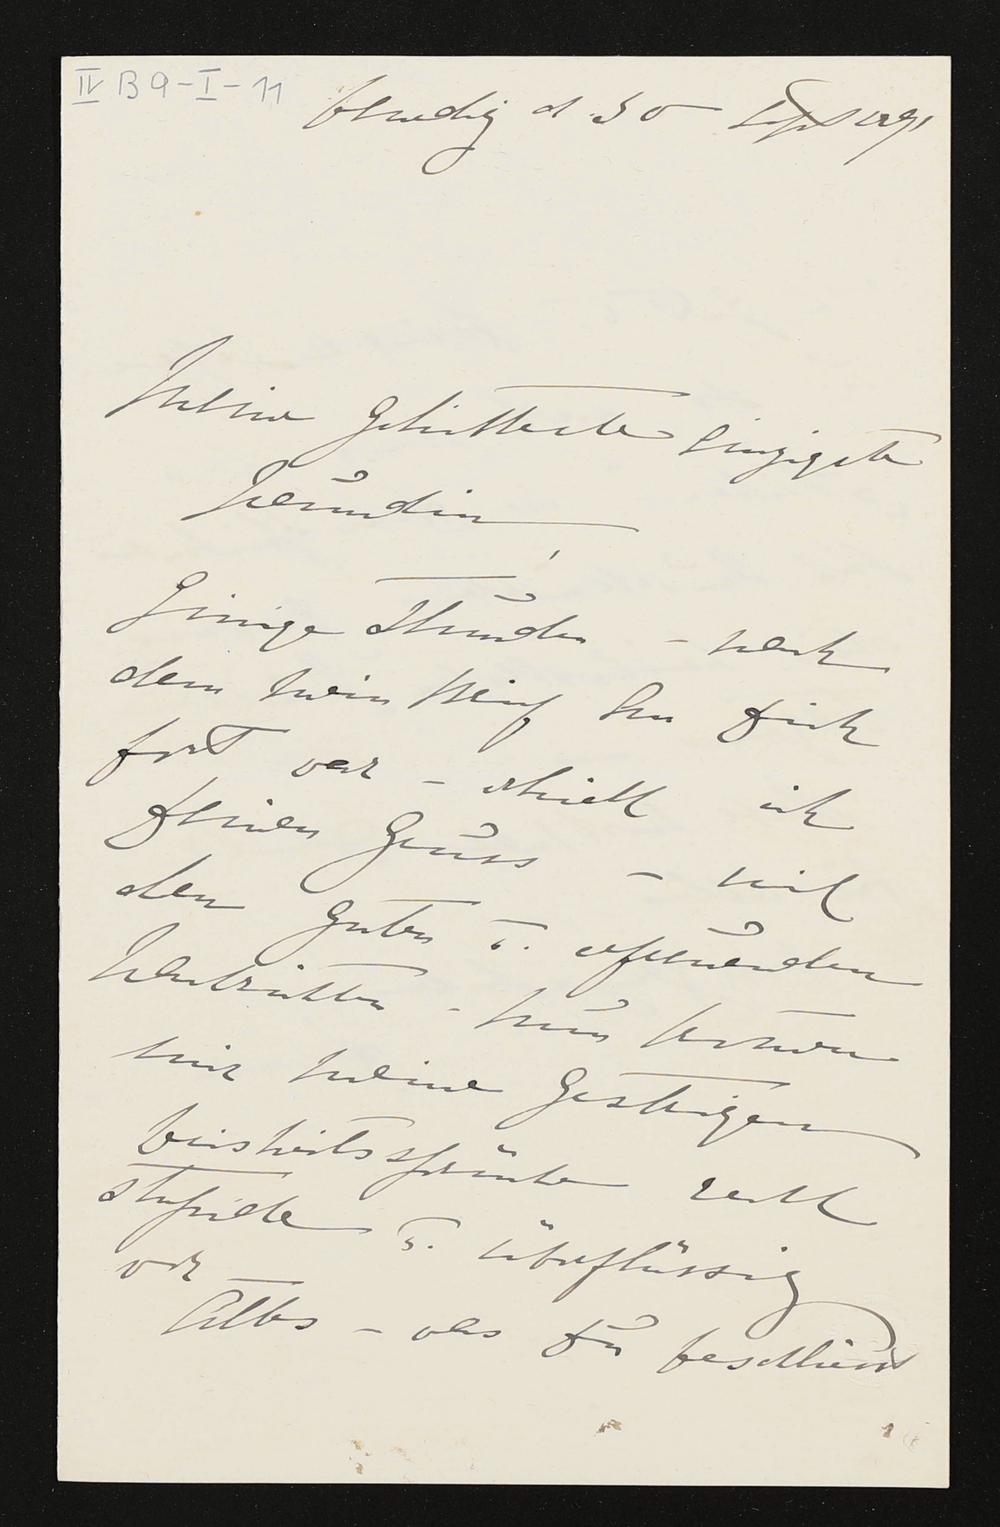 IV B 9 - I - 11
Venedig d. 30 Sept 1891
Meine Geliebteste Einzigste
Freundin
Einige Stunden - nach
dem mein Brief an Dich
fort war - erhielt ich
Deinen Gruss - mit
den guten u. erfreuenden
Nachrichten - nun kommen
mir meine gestrigen
Weisheitssprüche recht
stupide u. überflüssig
vor
Alles - was Du beschliesst